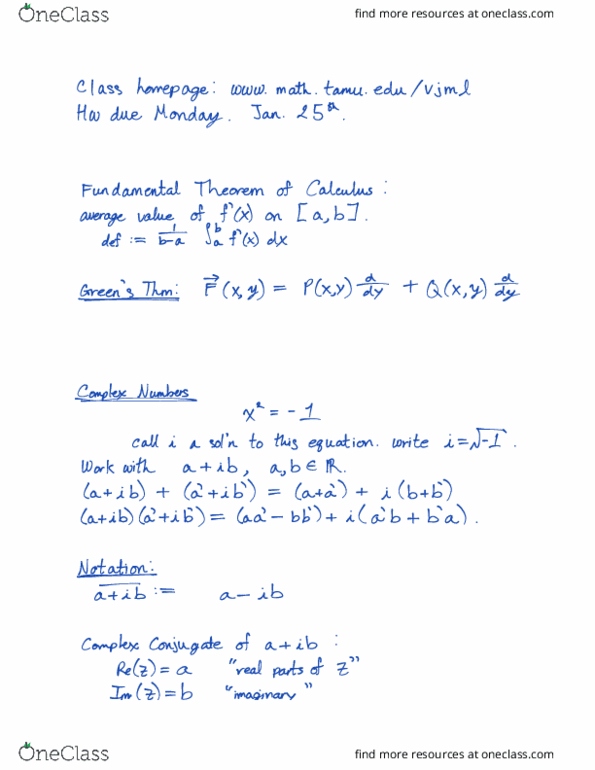 OneClass
find more resources at oneclass.com
Class homepage: www.math.tamu.edu/vjml
Hw due Monday. Jan. 25th.
Fundamental Theorem of Calculus:
average value of f(x) on [a,b].
def := 1/(b-a) ∫_a^b f(x) dx
Green's Thm: F⃗(x,y) = P(x,y) d/dy + Q(x,y) d/dy
Complex Numbers
x² = -1
call i a sol'n to this equation. write i=√-1.
Work with a+ib, a,b∈ℝ.
(a+ib) + (a'+ib') = (a+a') + i(b+b')
(a+ib)(a'+ib') = (aa' - bb') + i(a'b + b'a).
Notation:
a̅+̅i̅b̅ := a - ib
Complex Conjugate of a+ib :
Re(z) = a "real parts of z"
Im(z) = b "imaginary"
OneClass
find more resources at oneclass.com